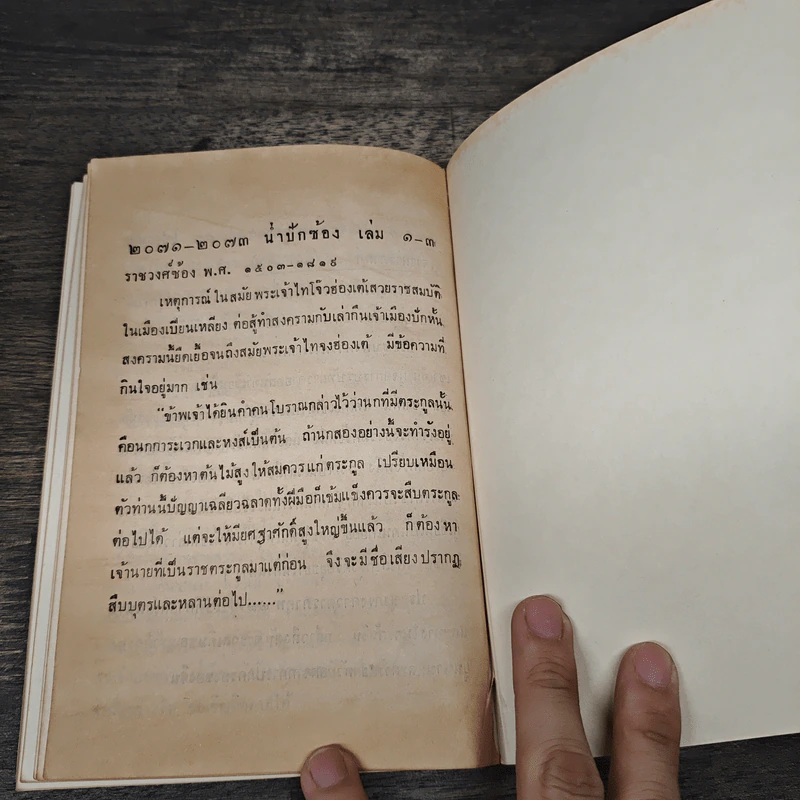 ๒๐๗๑–๒๐๗๓ น่ำปักซ้อง เล่ม ๑–๓
ราชวงศ์ซ้อง พ.ศ. ๑๕๐๓–๑๘๑๙
เหตุการณ์ในสมัยพระเจ้าไทโจ๊วฮ่องเต้เสวยราชสมบัติ
ในเมืองเบี้ยนเหลียง ต่อสู้ทำสงครามกับเล่ากึนเจ้าเมืองปักหั้น
สงครามนี้ยืดเยื้อจนถึงสมัยพระเจ้าไทจงฮ่องเต้ มีข้อความที่
กินใจอยู่มาก เช่น
“ข้าพเจ้าได้ยินคำคนโบราณกล่าวไว้ว่านกที่มีตระกูลนั้น
คือนกการะเวกและหงส์เป็นต้น ถ้านกสองอย่างนี้จะทำรังอยู่
แล้ว ก็ต้องหาต้นไม้สูงให้สมควรแก่ตระกูล เปรียบเหมือน
ตัวท่านนี้ปัญญาเฉลียวฉลาดทั้งฝีมือก็เข้มแข็งควรจะสืบตระกูล
ต่อไปได้ แต่จะให้มียศฐาศักดิ์สูงใหญ่ขึ้นแล้ว ก็ต้องหา
เจ้านายที่เป็นราชตระกูลมาแต่ก่อน จึงจะมีชื่อเสียงปรากฏ
สืบบุตรและหลานต่อไป......”